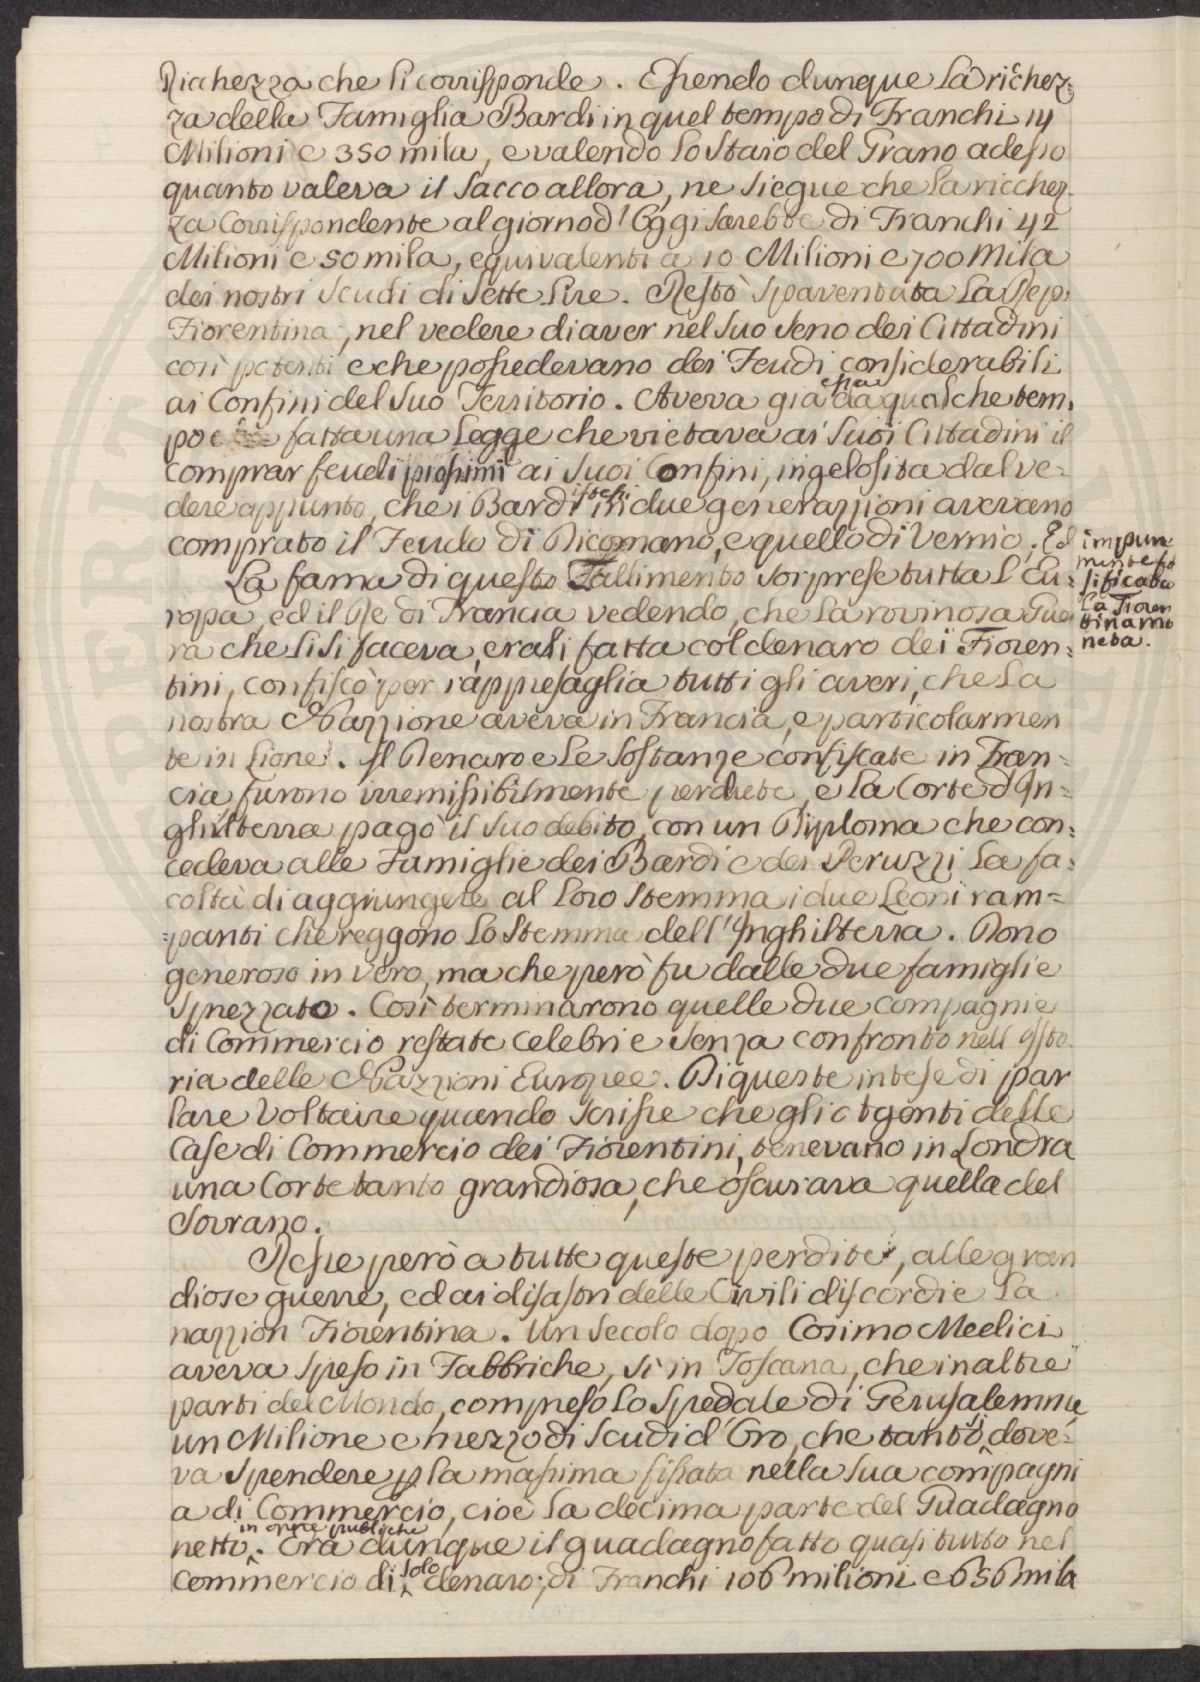 Ricchezza che li corrisponde. Essendo dunque la richez-
za della Famiglia Bardi in quel tempo di Franchi 14
Milioni e 350 mila, e valendo lo Staio del Grano adesso
quanto valeva il Sacco allora, ne siegue che la ricchez-
za Corrispondente al giorno d'Oggi sarebbe di Franchi 42
Milioni e 50 mila, equivalenti a 10 Milioni e 700 Mila
dei nostri Scudi di Sette Lire. Restò Spaventata la Rep:
Fiorentina, nel vedere di aver nel Suo Seno dei Cittadini
così potenti e che possedevano dei Feudi considerabili
ai Confini del Suo Territorio. Aveva già essa da qualche tem,
po fatta una Legge che vietava ai Suoi Cittadini il
comprar feudi prossimi ai Suoi Confini, ingelosita dal ve-
dere appunto, che i Bardi istessi in due generazzioni avevano
comprato il Feudo di Dicomano, e quello di Vernio. Ed
impun-
mente fal
sificata
la Fioren
tina mo
neta.
La fama di questo Fallimento sorprese tutta l'Eu-
ropa, ed il Re di Francia vedendo, che la rovinosa Guer
ra che li si faceva, erasi fatta col denaro dei Fioren-
tini, confiscò per rappresaglia tutti gli averi, che la
nostra Nazzione aveva in Francia, e particolarmen
te in Lione. Il Denaro e le Sostanze confiscate in Fran-
cia furono irremissibilmente perdute, e la Corte d'In-
ghilterra pagò il Suo debito, con un Diploma che con-
cedeva alle Famiglie dei Bardi e dei Peruzzi la fa-
coltà di aggiungere al loro Stemma i due Leoni ram=
=panti che reggono lo Stemma dell'Inghilterra. Dono
generoso in vero, ma che però fu dalle due famiglie
Sprezzato. Così terminarono quelle due Compagnie
di Commercio restate celebri e Senza confronto nell'Isto
ria delle Nazzioni Europee. Di queste intese di par
lare Voltaire quando Scrisse che gli Agenti delle
Case di Commercio dei Fiorentini, tenevano in Londra
una Corte tanto grandiosa, che oscurava quella del
Sovrano.
Resse però a tutte queste perdite, alle gran
diose guerre, ed ai disastri delle Civili discordie la
nazzion Fiorentina. Un Secolo dopo Cosimo Medici
aveva Speso in Fabbriche, sì in Toscana, che in altre
parti del Mondo, compreso lo Spedale di Gerusalemme,
un Milione e mezzo di Scudi d'Oro, che tanto si dove-
va Spendere p la massima fissata nella Sua compagni
a di Commercio, cioè la decima parte del Guadagno
netto in opere publiche. Ora dunque il guadagno fatto quasi tutto nel
Commercio di solo denaro, di Franchi 106 milioni e 656 mila